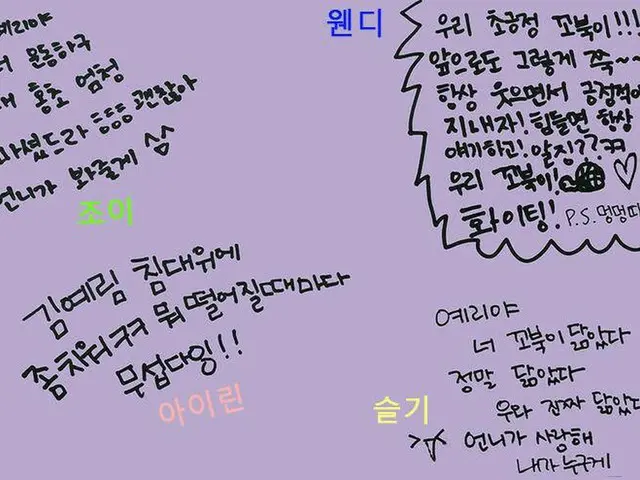 예리야
운동하구
홍초 엄청
마셨드라 ㅎㅎㅎ 괜찮아
언니가 봐줄게 ^^
조이
웬디
우리 초긍정 꼬북이!!!
앞으로도 그렇게 쭉~~
항상 웃으면서 긍정적이
지내자! 힘들면 항상
얘기하고! 알징??ㅋㅋ
우리 꼬북이!
화이팅! P.S. 멍멍따
김예림 침대위에
좀 치워ㅋㅋ 뭐 떨어질때마다
무섭다잉!!
아이린
슬기
예리야
너 꼬북이 닮았다
정말 닮았다
우와 진짜 닮았다
언니가 사랑해
내가 누구게